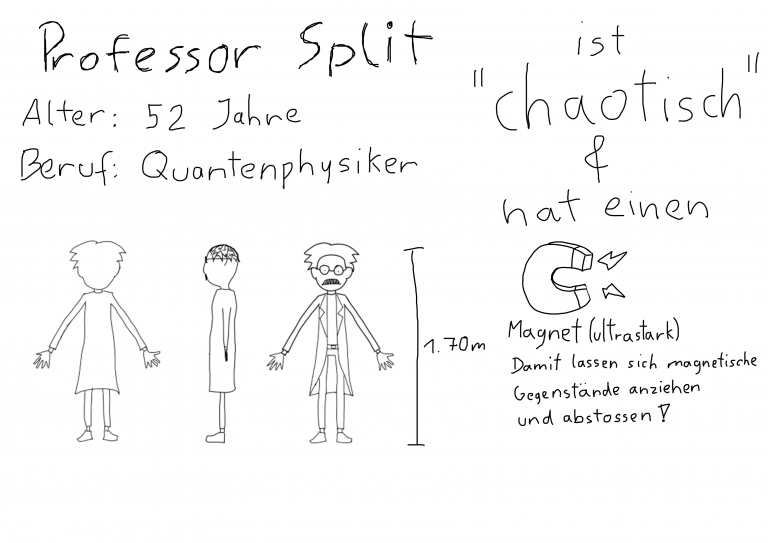 Professor Split
Alter: 52 Jahre
Beruf: Quantenphysiker
ist
"chaotisch"
&
hat einen
1.70m
Magnet (ultrastark)
Damit lassen sich magnetische
Gegenstände anziehen
und abstossen!